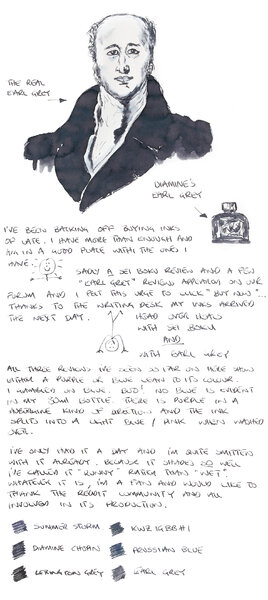 THE REAL
EARL GREY
DIAMINE'S
EARL GREY
I'VE BEEN BACKING OFF BUYING INKS
OF LATE. I HAVE MORE THAN ENOUGH AND
I'M IN A GOOD PLACE WITH THE ONES I
HAVE.
SADLY A SEI BOKU REVIEW AND A FEW
"EARL GREY" REVIEWS APPEARED ON OUR
FORUM AND I FELT THIS URGE TO CLICK "BUY NOW"...
THANKS TO THE WRITING DESK MY INKS ARRIVED
THE NEXT DAY.
HEAD OVER HEELS
WITH SEI BOKU
AND
WITH EARL GREY
ALL THREE REVIEWS I'VE SEEN SO FAR ON HERE SHOW
EITHER A PURPLE OR BLUE LEAN TO ITS COLOUR.
I BANKED ON BLUE. BUT! NO BLUE IS EVIDENT
IN MY 30ml BOTTLE. THERE IS PURPLE IN A
KIND OF DIRECTION AND THE INK
SPLITS INTO A LIGHT BLUE / PINK WHEN WASHED
OVER.
I'VE ONLY HAD IT A DAY AND I'M QUITE SMITTEN
WITH IT ALREADY. BECAUSE IT SHADES SO WELL
I'VE CALLED IT "RUNNY" RATHER THAN "WET".
WHATEVER IT IS, I'M A FAN AND WOULD LIKE TO
THANK THE REDDIT COMMUNITY AND ALL
INVOLVED IN ITS PRODUCTION.
SUMMER STORM
KWZ IG BBH1
DIAMINE CHOPIN
PRUSSIAN BLUE
LEXINGTON GREY
EARL GREY